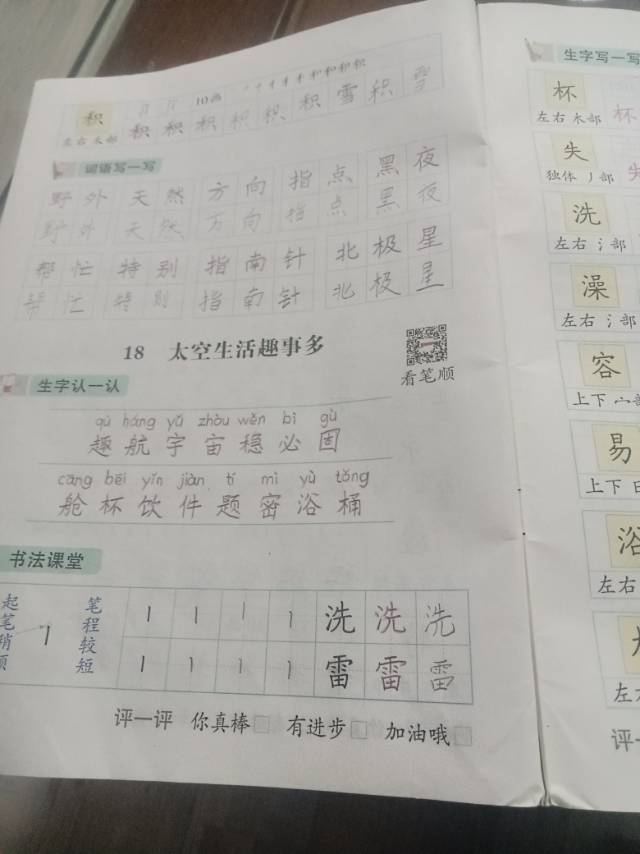 积 10画
左右 禾部 积 积 积 积 积 积 雪 积 雪
词语写一写
野外 天然 方向 指点 黑夜
野外 天然 方向 指点 黑夜
帮忙 特别 指南针 北极星
帮忙 特别 指南针 北极星
18 太空生活趣事多
看笔顺
生字认一认
qù háng yǔ zhòu wěn bì gù
趣 航 宇 宙 稳 必 固
cāng bēi yǐn jiàn tí mì yù tǒng
舱 杯 饮 件 题 密 浴 桶
书法课堂
起笔稍顿
笔程较短
洗 洗 洗
雷 雷 雷
评一评 你真棒 有进步 加油哦
生字写一写
杯
左右 木部 杯
失
独体 丿部 失
洗
左右 氵部
澡
左右 氵部
容
上下 宀部
易
上下 日
浴
左右
评一